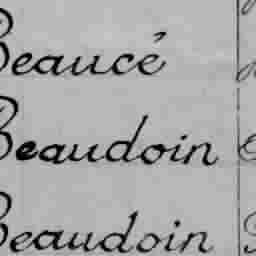 Beaucé
Beaudoin
Beaudoin